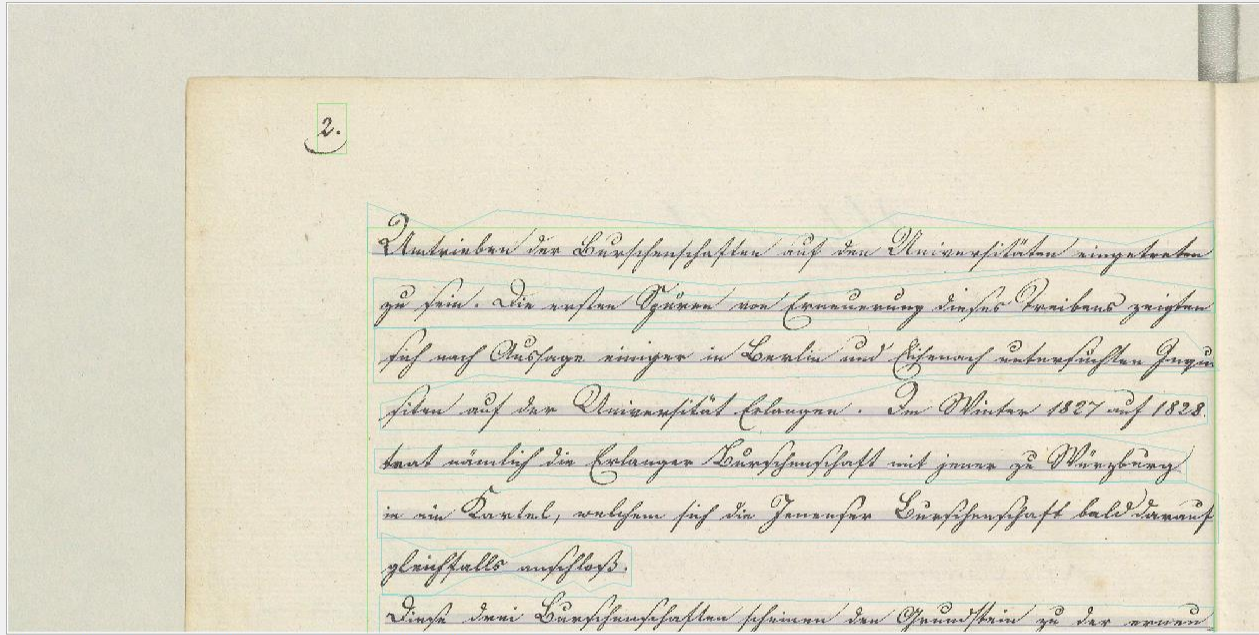 2.
Umtrieben der Burschenschaften auf den Universitäten eingetreten
zu sein. Die ersten Spuren von Erneuerung dieses Treibens zeigten
sich nach Aussage einiger in Berlin und Eisenach untersuchten Inqui
siten auf der Universität Erlangen. Im Winter 1827 auf 1828.
trat nämlich die Erlanger Burschenschaft mit jener zu Würzburg
in ein Kartel, welchem sich die Jenenser Burschenschaft bald darauf
gleichfalls anschloß.
Diese drei Burschenschaften scheinen den Grundstein zu der erneu